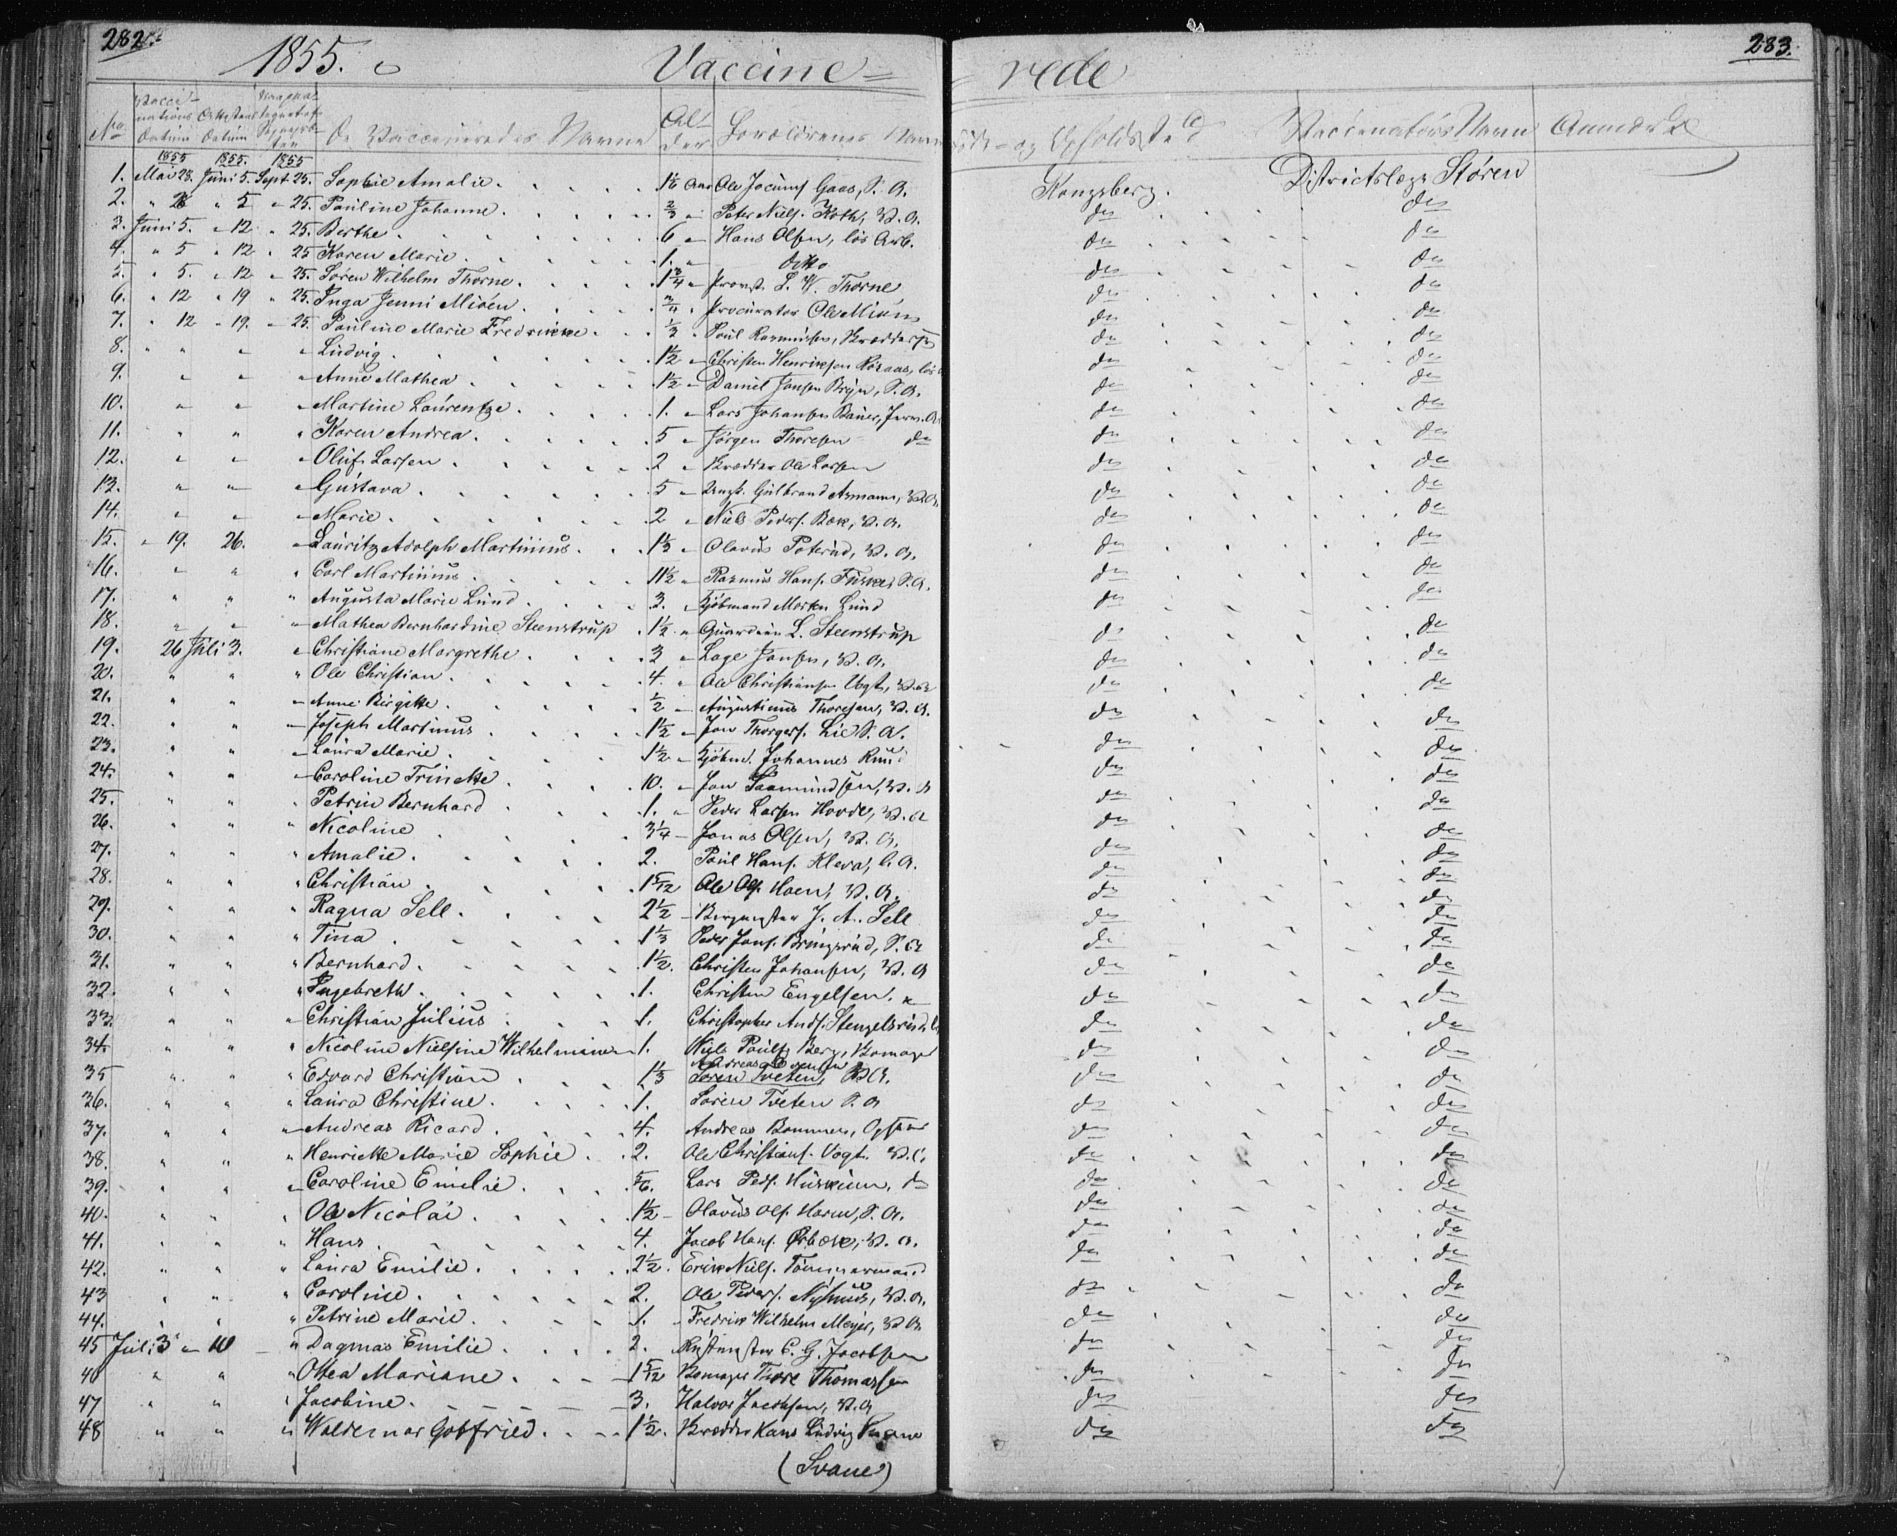 282.
1855.
Vaccine=
rede
283.
No
Vacci-nations Datum
Attestens Datum
De Vaccineredes Navne
Al-der
Forældrenes Navn
og Opholdsted
Vaccinatörs Navn
Anmærk
1855 1855. 1855
1. Mai 28. Juni 5. Sept 25. Sophie Amalie. 1½ Aar Ole Jocumf Gaas, S. A. Kongsberg. Districtslæge Stören
2. " 28 " 5 " 25. Pauline Johanne. ⅔ " Peter Nielf. Koth, B. A. do do
3. Juni 5. " 12 " 25. Berthe. 6 " Hans Olsen, lös Arb. do do
4. " 5 " 12 " 25 Karen Marie. 1. " ditto do do
5. " 5. " 12 " 25. Sören Wilhelm Thorne. 1¾ " Provst L. W. Thorne do do
6. " 12 " 19 " 25. Inga Jenni Mioen. ¾ " Procurator Ole Mioen do do
7. " 12 " 19. " 25. Pauline Marie Fredrikke ⅓ " Poul Rasmusen, do do
8. " " " " Ludvig. 1½ " Christen Henriksen Röraas, lös do do
9. " " " Anne Mathea. 1½ " Daniel Jansen Bryn, S. A. do do
10. " " " Martine Laurentze. 1. " Lars Johansen Bauer, Jernv. A do do
11. " " " Karen Andrea. 5 " Jörgen Thoresen do do do
12. " " " Oluf Larsen. 2 " Ole Larsen do do
13. " " " Gustava. 5 " Gulbrand Asmann, B. A. do do
14. " " " Marie. 2 " Niels Pedersf. Bæk, B. A. do do
15. " 19. 26. " Lauritz Adolph Martinius. 1⅓ " Olavus Poterud, B. A. do do
16. " " " Carl Martinius. 11½ " Rasmus Hansf. S. A. do do
17. " " " Augusta Marie Lund. 3. " Kjöbmand Morten Lund do do
18. " " " Mathea Bernhardine Steenstrup 1½ " Guardein L. Steenstrup do do
19. 26 Juli 3. " Christiane Margrethe. 3 " Lage Jansen, B. A. do do
20. " " " Ole Christian. 4. " Ole Christiansen Vogt, B. A do do
21. " " " Anne Birgitte. ½ " Augustinus Thoresen, B. A. do do
22. " " " Joseph Martinus 1½ " Jon Thorgersf. Lie S. A. do do
23. " " " Laura Marie. 1½ " Kjöbm. Johannes Ruud do do
24. " " " Caroline Trinette. 10. " Jon Saamundsen, B. A do do
25. " " " Petrin Bernhard 1. " Peder Larsen Hovde, B. A do do
26. " " " Nicoline 3¼ " Jonas Olsen, B. A. do do
27. " " " Amalie. 2. Poul Hansf. Kleva, A. do do
28. " " " Christian. 1 5/12 Ole Olf. Hoen, B. A. do do
29. " " " Ragna Sell. 2½ " Bergmester J. A. Sell do do
30. " " " Tina 1⅓ Peder Jansf. Bringsrud, S. A do do
31. " " " Bernhard. 1½. Christen Johansen, B. A do do
32. " " " Ingebreth. 1. Christen Engelsen. do do
33. " " " Christian Julius. 1. Christopher Andf. Stengelsrud, do do
34. " " " Nicoline Nielsine Wilhelmine 1. Niels Paulf Berg, Bomager do do
35 " " " Edvard Christian 1⅓ Andreas Evensen Sören Tveten, B. A. do do
36. " " " Laura Christine. 1. Sören Tveten S. A do do
37. " " " Andreas Ricard. 4. Andreas Bommen, do do
38. " " " Henriette Marie Sophie. 2. Ole Christiansf. Vogt B. A. do do
39. " " " Caroline Emilie. 5/6. Lars Pedf. do do do
40. " " " Ole Nicolai. 1½ " Olavus Olf. Horne, S. A. do do
41. " " " Hans. 4. Jacob Hansf. Örbæk, B. A. do do
42. " " " Laura Emilie. 2½. Erik Nielf. Tömmermand do do
43 " " " Caroline. 2. Ole Pedersf. Nyhuus, B. A. do do
44. " " " Petrine Marie. 1. Fredrik Wilhelm Meyer, B. A do do
45 Juli 3 " 10 " Dagmar Emilie. 2. C. G. Jacobsen do do
46 " " " Ottea Mariane. 1 5/12 Bomager Thore Thomassen do do
47 " " " Jacobine. 3. Halvor Jacobsen, B. A do do
48 " " " Waldemar Gotfried. 1½. Hans Ludvig Svane do do
(Svane)